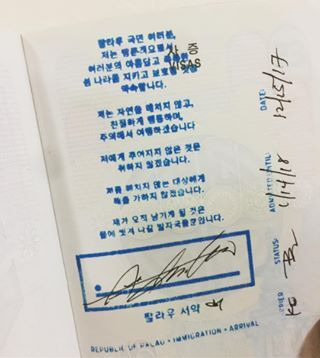 팔라우 국민 여러분,
저는 방문객으로서
사 증
VISAS
여러분의 아름답고 독특한
섬 나라를 지키고 보호할 것을
약속합니다.
저는 자연을 해치지 않고,
친절하게 행동하며,
주의해서 여행하겠습니다
저에게 주어지지 않은 것은
취하지 않겠습니다.
저를 해치지 않는 대상에게
해를 가하지 않겠습니다.
제가 오직 남기게 될 것은
물에 씻겨 나갈 발자국들뿐입니다.
팔라우 서약
REPUBLIC OF PALAU • IMMIGRATION • ARRIVAL
DATE: 12/15/17
ADMITTED UNTIL: 1/14/18
STATUS: